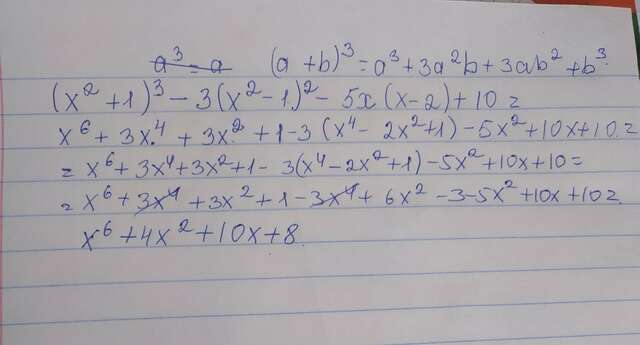 a³ = a (a+b)³ = a³ + 3a²b + 3ab² + b³
(x² + 1)³ - 3(x² - 1)² - 5x(x - 2) + 10 =
x⁶ + 3x⁴ + 3x² + 1 - 3(x⁴ - 2x² + 1) - 5x² + 10x + 10 =
= x⁶ + 3x⁴ + 3x² + 1 - 3(x⁴ - 2x² + 1) - 5x² + 10x + 10 =
= x⁶ + 3x⁴ + 3x² + 1 - 3x⁴ + 6x² - 3 - 5x² + 10x + 10 =
x⁶ + 4x² + 10x + 8.